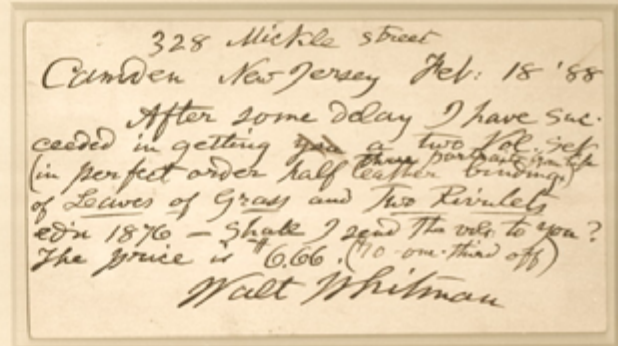 328 Mickle street
Camden New Jersey Feb: 18 '88
After some delay I have suc-
ceeded in getting you a two Vol. set
three portraits from life
(in perfect order half leather binding)
of Leaves of Grass and Two Rivulets
ed'n 1876 — Shall I send the vols. to you?
The price is $6.66. (10 one-third off)
Walt Whitman